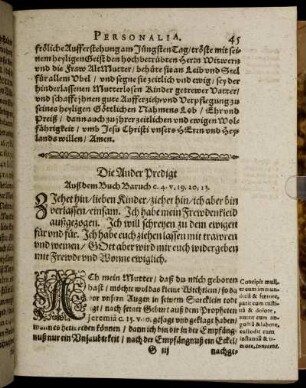 PERSONALIA. 45
fröliche Aufferstehung am Jüngsten Tag/ tröste mit sei-
nem heyligen Geist den hochbetrübten Herrn Witwern
und die Fraw AltMutter/ behüte sie an Leib und Seel
für allem Vbel/ und segne sie zeitlich und ewig/ sey der
hinderlassenen Mutterlosen Kinder getrewer Vatter/
und schaffe jhnen gute Aufferzieh- und Verpflegung zu
seines heyligen Göttlichen Nahmens Lob/ Ehr und
Preiß/ dann auch zu jhrer zeitlichen und ewigen Wol-
fährigkeit/ umb Jesu Christi unsers HErrn und Hey-
lands willen/ Amen.
Die Ander Predigt
Auß dem Buch Baruch c. 4. v. 19. 20. 23.
ZIehet hin/ lieben Kinder/ ziehet hin/ ich aber bin
verlassen/ einsam. Ich habe mein Frewdenkleid
außgezogen. Ich will schreyen zu dem ewigen
für und für. Ich habe euch ziehen lassen mit trawren
und weinen/ GOtt aber wird mir euch widergeben
mit Frewde und Wonne ewiglich.
ACh mein Mutter/ daß du mich geboren
hast/ möchte wol das kleine
vor unsern Augen in seinem Särcklein
nach seiner Geburt auß dem Propheten
Jeremiä c. 15. v. 10. gesagt und geklagt haben/
wann es hette reden können/ dann ich bin dir in der Empfäng-
nuß nur ein Unsauberkeit/ nach der Empfängnuß ein Eckel/
Concipit muli-
er cum immun-
ditiâ & fœtore,
parit cum tristi-
tiâ & dolore,
nutrit cum an-
gustiâ & labore,
custodit cum
instantiâ & ti-
more, Innocent.
G iij nachge-